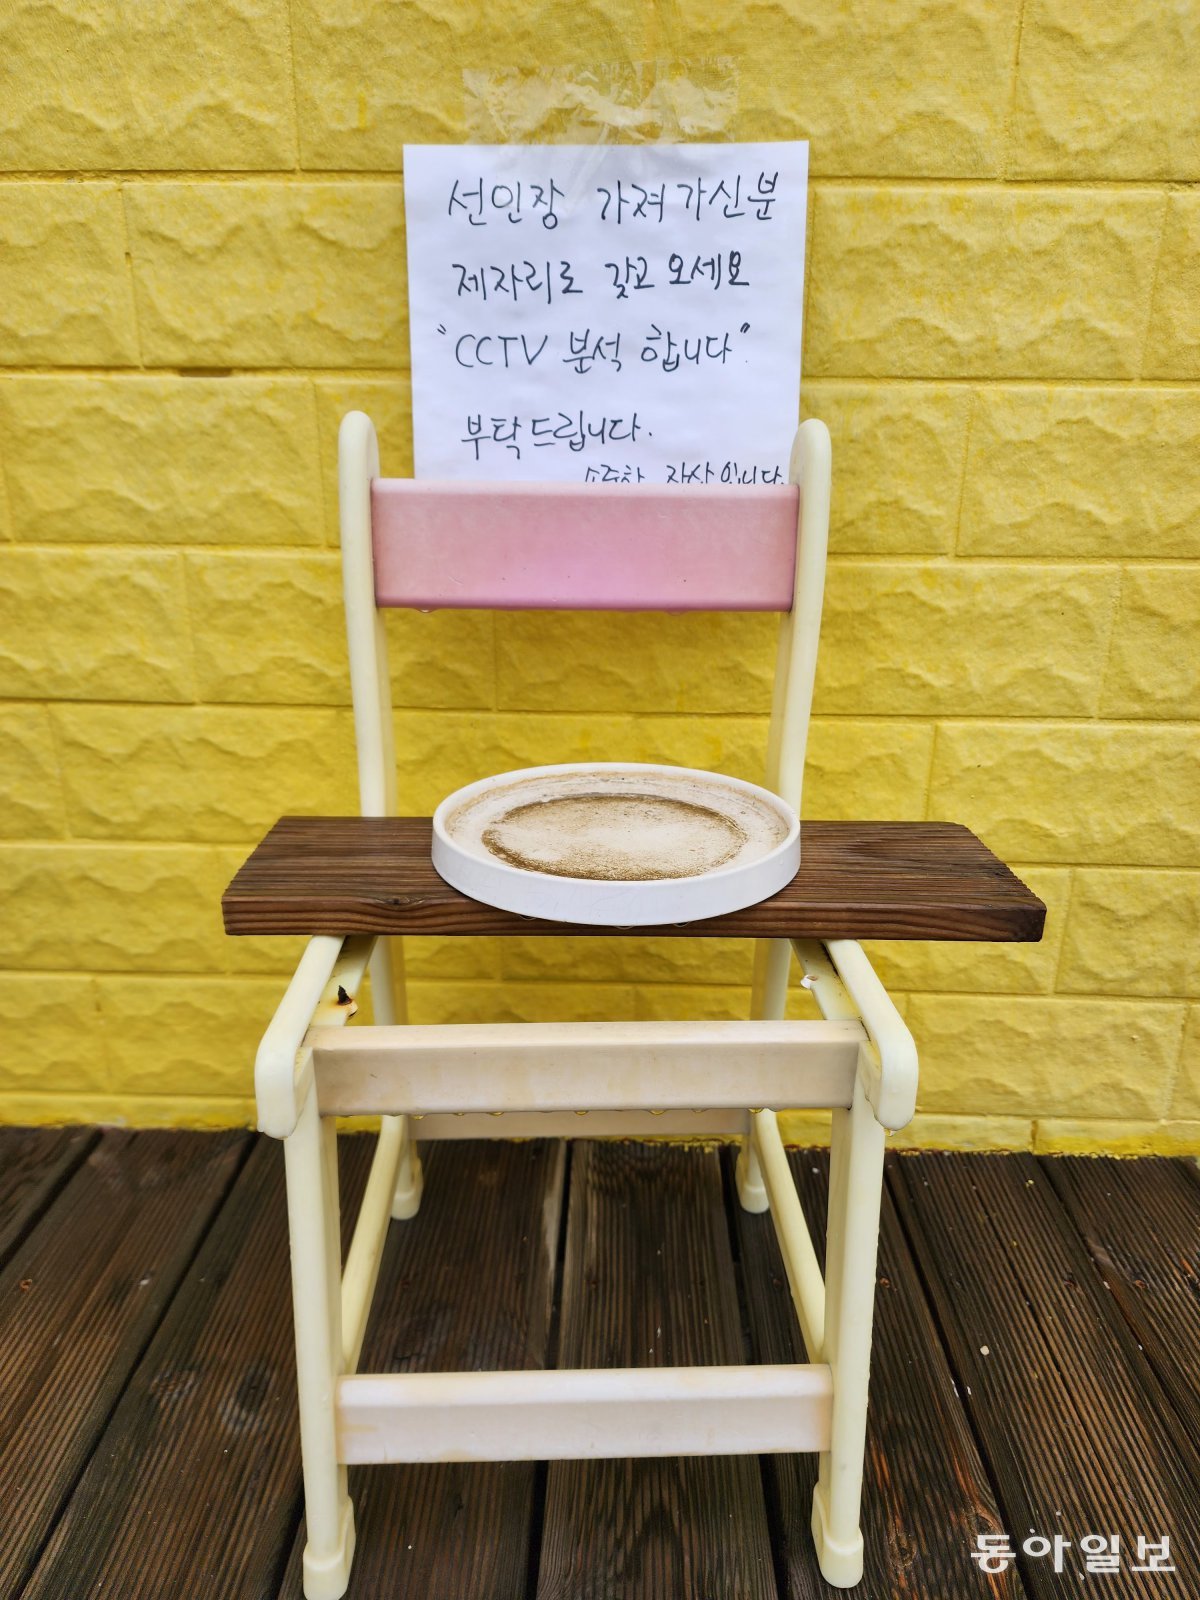 선인장 가져가신분
제자리로 갖고 오세요
"CCTV 분석 합니다".
부탁드립니다.
소중한 자산입니다.
동아일보